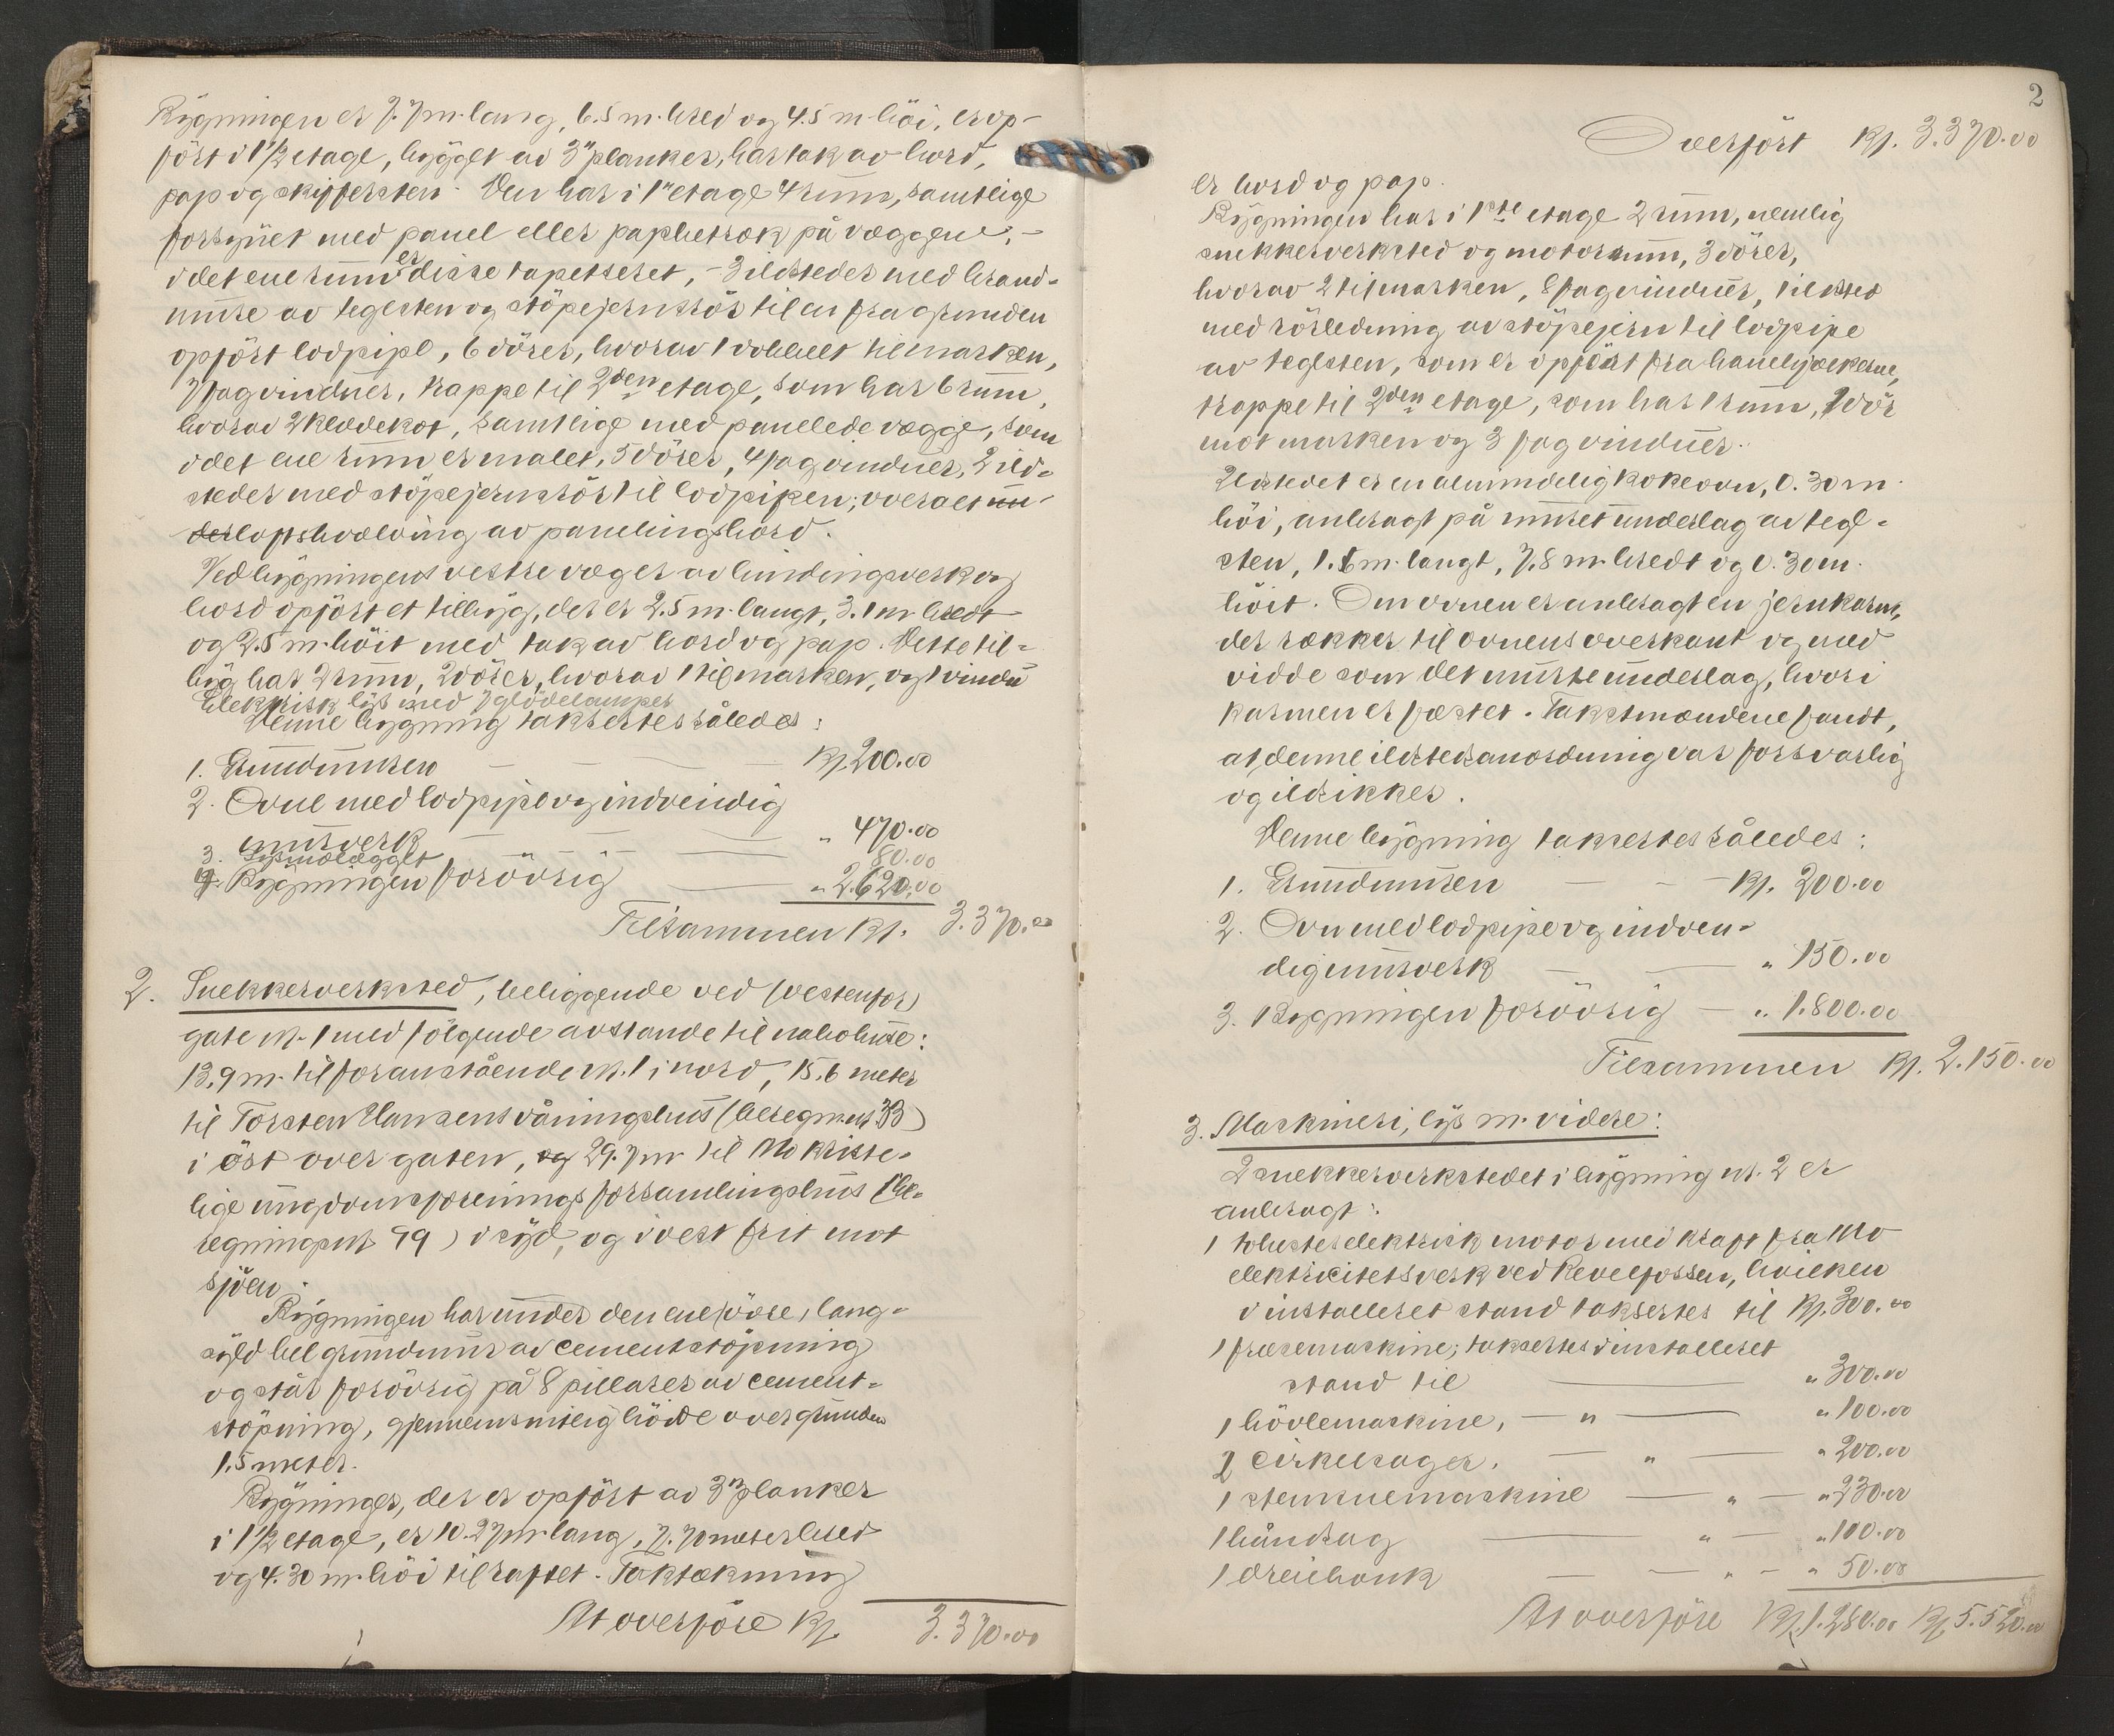 Bygningen er 7.7 m. lang, 6.5 m. bred og 4.5 m. höi, er op-
fört i 1½ etage, bygget av 3" planker, har tak av bord,
pap og skifersten. Den har i 1ste etage 4 rum, samtlige
forsynet med panel eller papbetræk på væggene, -
i det ene rum er disse tapetseret, - 3 ildsteder med brand-
mure av teglsten og stöpejernsrör til en fra grunden
opfört lodpipe, 6 dörer, hvorav 1 dobbelt til marken,
7 fag vinduer, trappe til 2den etage, som har 6 rum,
hvorav 2 klædekot, samtlige med panelede vægge, som
i det ene rum er malet, 5 dörer, 4 fag vinduer, 2 ild-
steder med stöpejernsrör til lodpipen; overalt un-
derloftshvælving av panelingsbord.
Ved bygningens vestre væg er av bindingsverk og
bord opfört et tilbyg, der er 2.5 m. langt, 3.1 m. bredt
og 2.5 m. höit med tak av bord og pap. Dette til-
byg har 2 rum, 2 dörer, hvorav 1 til marken, og 1 vindu
Elektrisk lys med 7 glödelamper
Denne bygning takseres således:
1. Grundmuren — Kr. 200.00
2. Ovne med lodpipe og indvendig
murverk — " 470.00
3. Lysanlægget — 80.00
4. Bygningen forövrig — " 2.620.00
Tilsammen Kr. 3.370.00
2. Snekkerverksted, beliggende ved (vestenfor)
gate nr. 1 med fölgende avstande til nabohuse:
13,9 m. til foranstående nr. 1 i nord, 15.6 meter
til Torsten Hansens våningshus (beregn.nr 33)
i öst over gaten, og 29.7 m. til Mo kriste-
lige ungdomsforenings forsamlingshus (be-
regningsnr. 99) i syd, og i vest frit mot
sjöen.
Bygningen har under den ene (övre) lang-
syld hel grundmur av cementstöpning
og står forövrig på 8 pillarer av cement-
stöpning, gjennemsnitlig höide over grunden
1.5 meter.
Bygningen, der er opfört av 3" planker
i 1½ etage, er 10.27 m. lang, 7.70 meter bred
og 4.30 m. höi til raftet. Taktækning
At overföre Kr. 3.370.00
2
Overfört Kr. 3.370.00
er bord og pap.
Bygningen har i 1ste etage 2 rum, nemlig
snekkerverksted og motorrum, 3 dörer,
hvorav 2 til marken, 8 fag vinduer, 1 ildsted
med rörledning av stöpejern til lodpipe
av teglsten, som er opfört fra hanebjælkerne,
trappe til 2den etage, som har 1 rum, 1 dör
mot marken og 3 fag vinduer.
Ildstedet er en almindelig kokeovn, 0.30 m.
höi, anbragt på muret underlag av tegl-
sten, 1.6 m. langt, 7.8 m. bredt og 0.30 m.
höit. Om ovnen er anbragt en jernkarm,
der rækker til ovnens overkant og med
vidde som det murte underlag, hvori
karmen er fæstet. Takstmændene fandt,
at denne ildstedsanordning var forsvarlig
og ildsikker.
Denne bygning takseres således:
1. Grundmuren — Kr. 200.00
2. Ovn med lodpipe og indven-
dig murverk — " 150.00
3. Bygningen forövrig — " 1.800.00
Tilsammen Kr. 2.150.00
3. Maskineri, lys m. videre:
I snekkerverkstedet i bygning nr. 2 er
anbragt:
1 elektrisk motor med kraft fra Mo
elektricitetsverk ved Revelfossen, hvilken
i installeret stand takseres til Kr. 300.00
1 fræsemaskine; takseres i installeret
stand til — " 300.00
1 hövlemaskine, — " — " 100.00
2 cirkelsager, — " — " 200.00
1 stemmemaskine — " — " 230.00
1 båndsag — " — " 100.00
1 dreiebænk — " — " 50.00
At overföre Kr. 1.280.00 Kr. 5.520.00